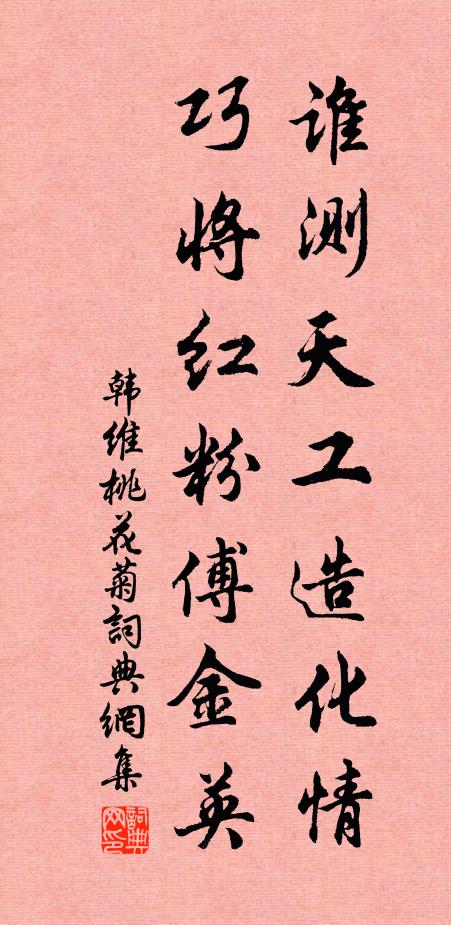 谁测天工造化情
巧将红粉傅金英
韩维桃花菊詞典網集
詞典网印